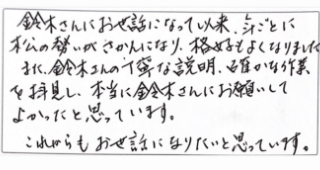 鈴木さんにお世話になって以来、年ごとに
松の勢いがさかんになり、格好もよくなりました
また、鈴木さんの丁寧な説明、確かな作業
を拝見し、本当に鈴木さんにお願いして
よかったと思っています。
これからもお世話になりたいと思っています。